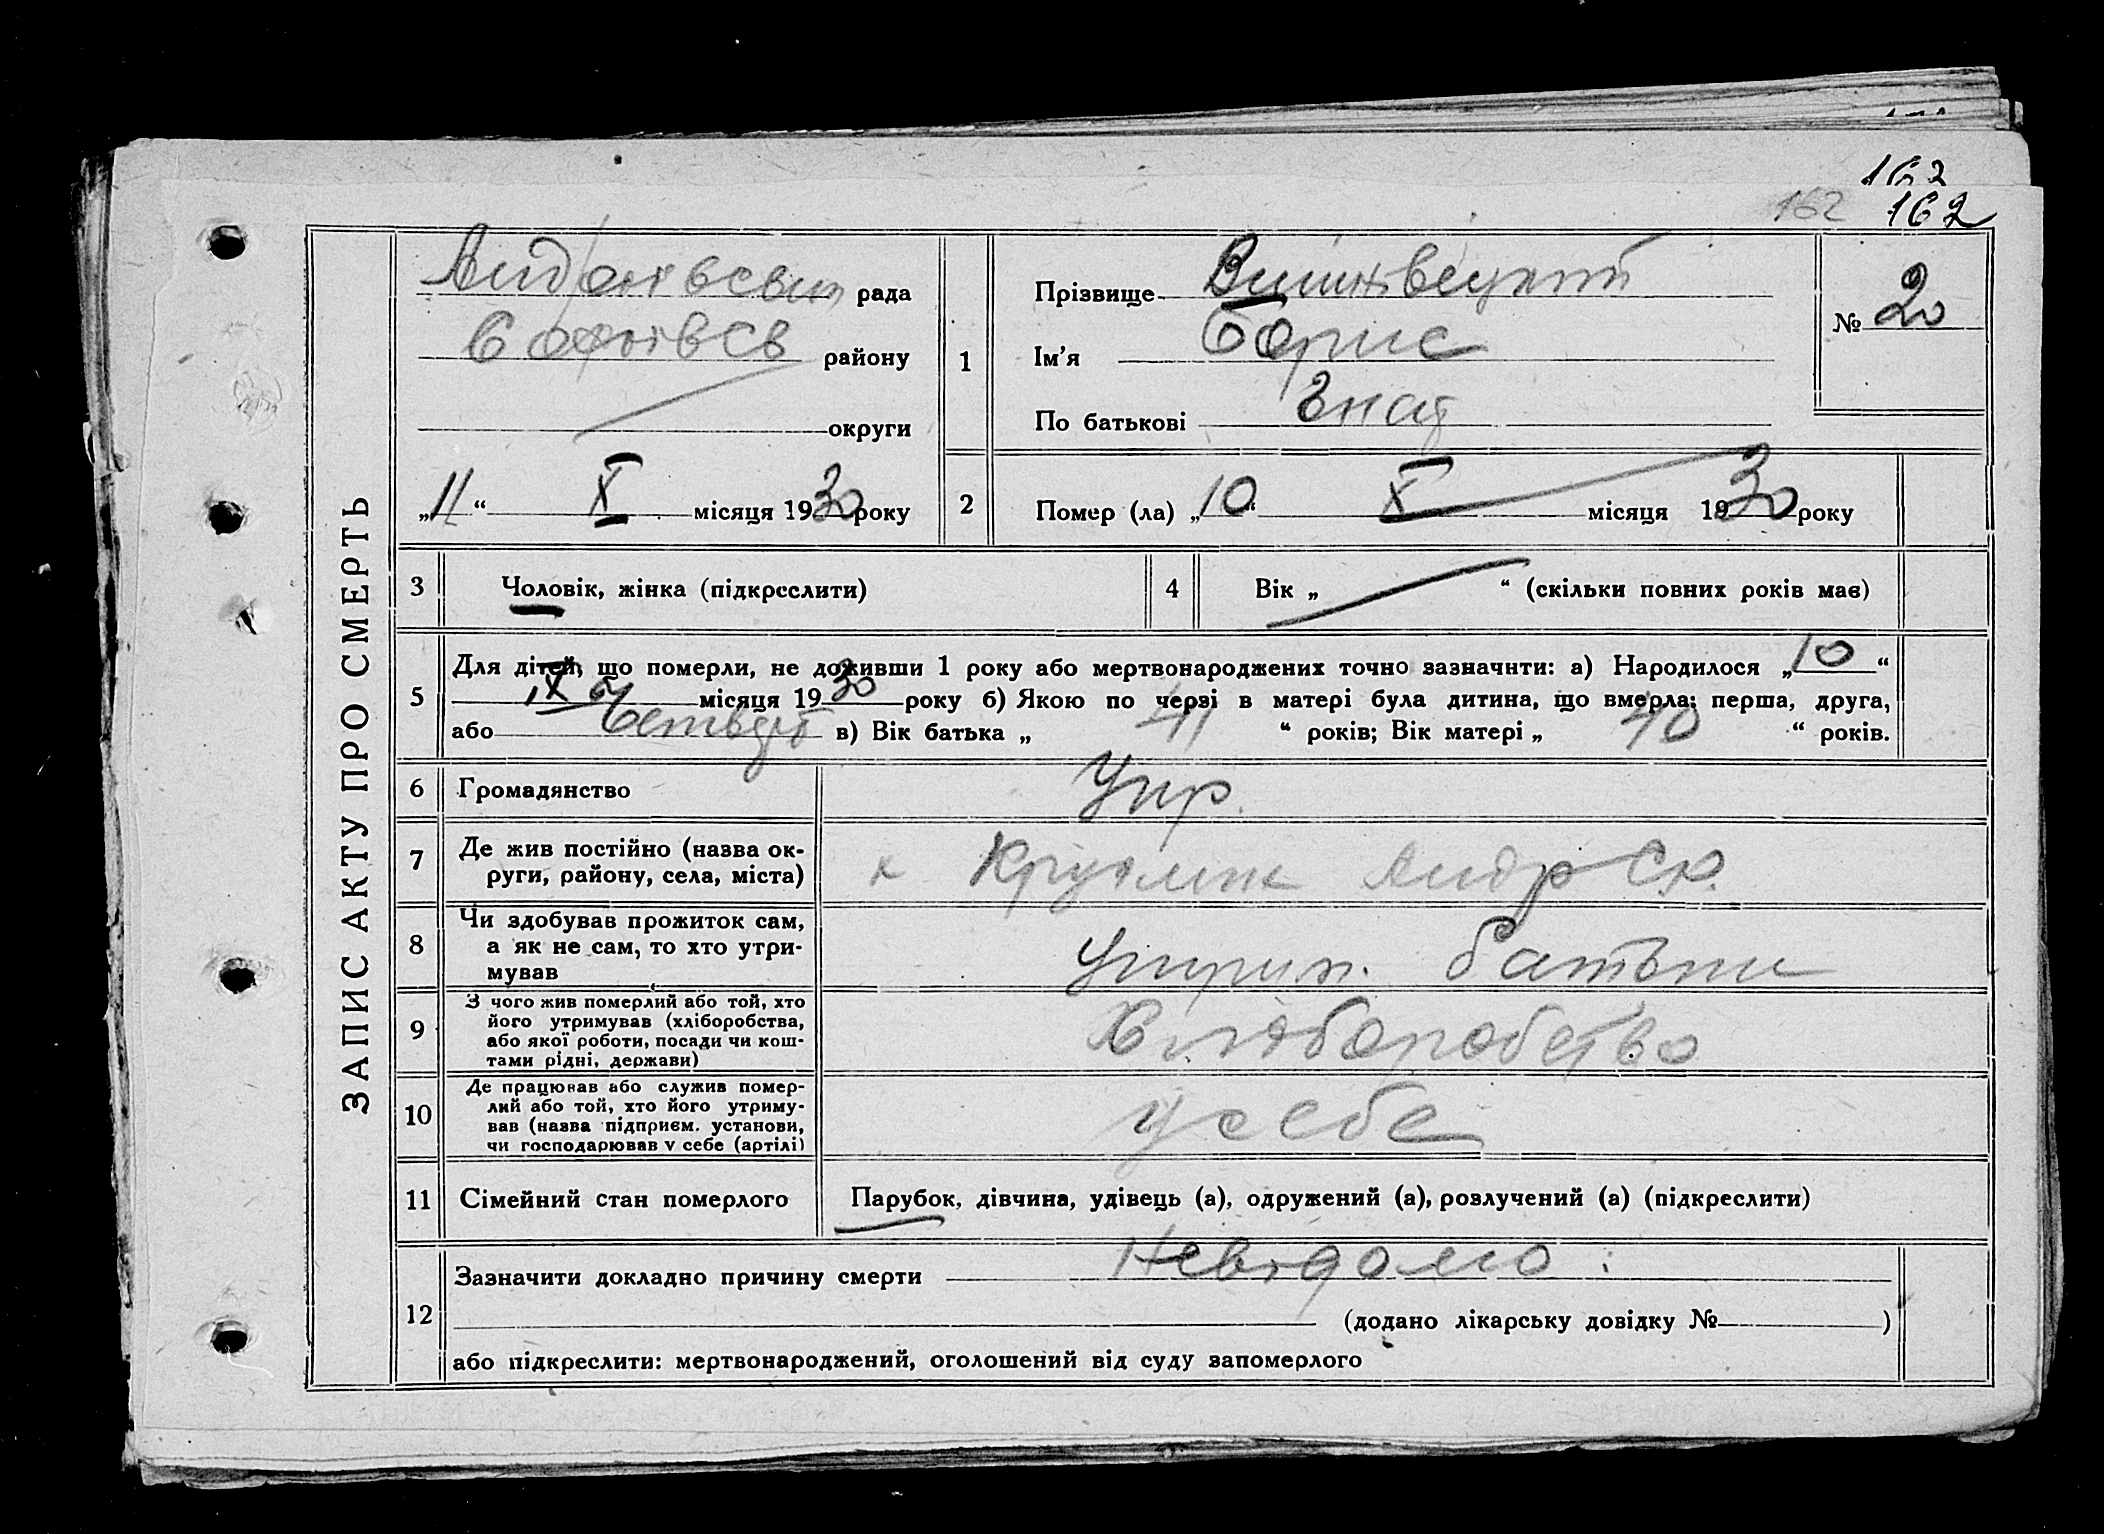 162
162 162
ЗАПИС АКТУ ПРО СМЕРТЬ
рада
Софіївсв району
округи
„11“ X місяця 1930 року
1
Прізвище Вишнвецкий
Ім’я Борис
По батькові Гнат
№ 20
2 Помер (ла) „10“ X місяця 1930 року
3 Чоловік, жінка (підкреслити)
4 Вік „ “ (скільки повних років має)
5 Для дітей, що померли, не доживши 1 року або мертвонароджених точно зазначити: а) Народилося „10“
IX місяця 1930 року б) Якою по черзі в матері була дитина, що вмерла: перша, друга,
або в) Вік батька „ 41 “ років; Вік матері „ 40 “ років.
6 Громадянство Укр.
7 Де жив постійно (назва ок-
руги, району, села, міста)
х Круглик Андр С.р.
8 Чи здобував прожиток сам,
а як не сам, то хто утри-
мував
утрим. батьки
9 З чого жив померлий або той, хто
його утримував (хліборобства,
або якої роботи, посади чи кош-
тами рідні, держави)
Хліборобство
10 Де працював або служив помер-
лий або той, хто його утриму-
вав (назва підприєм. установи,
чи господарював у себе (артілі)
у себе
11 Сімейний стан померлого Парубок, дівчина, удівець (а), одружений (а), розлучений (а) (підкреслити)
12 Зазначити докладно причину смерти Невідомо
(додано лікарську довідку № )
або підкреслити: мертвонароджений, оголошений від суду запомерлого